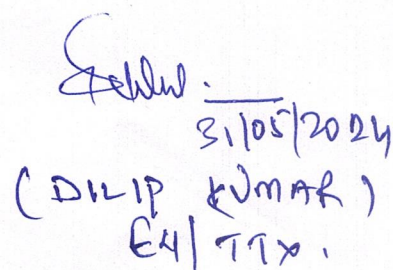 31/05/2024
(DILIP KUMAR)
E4/TTX.